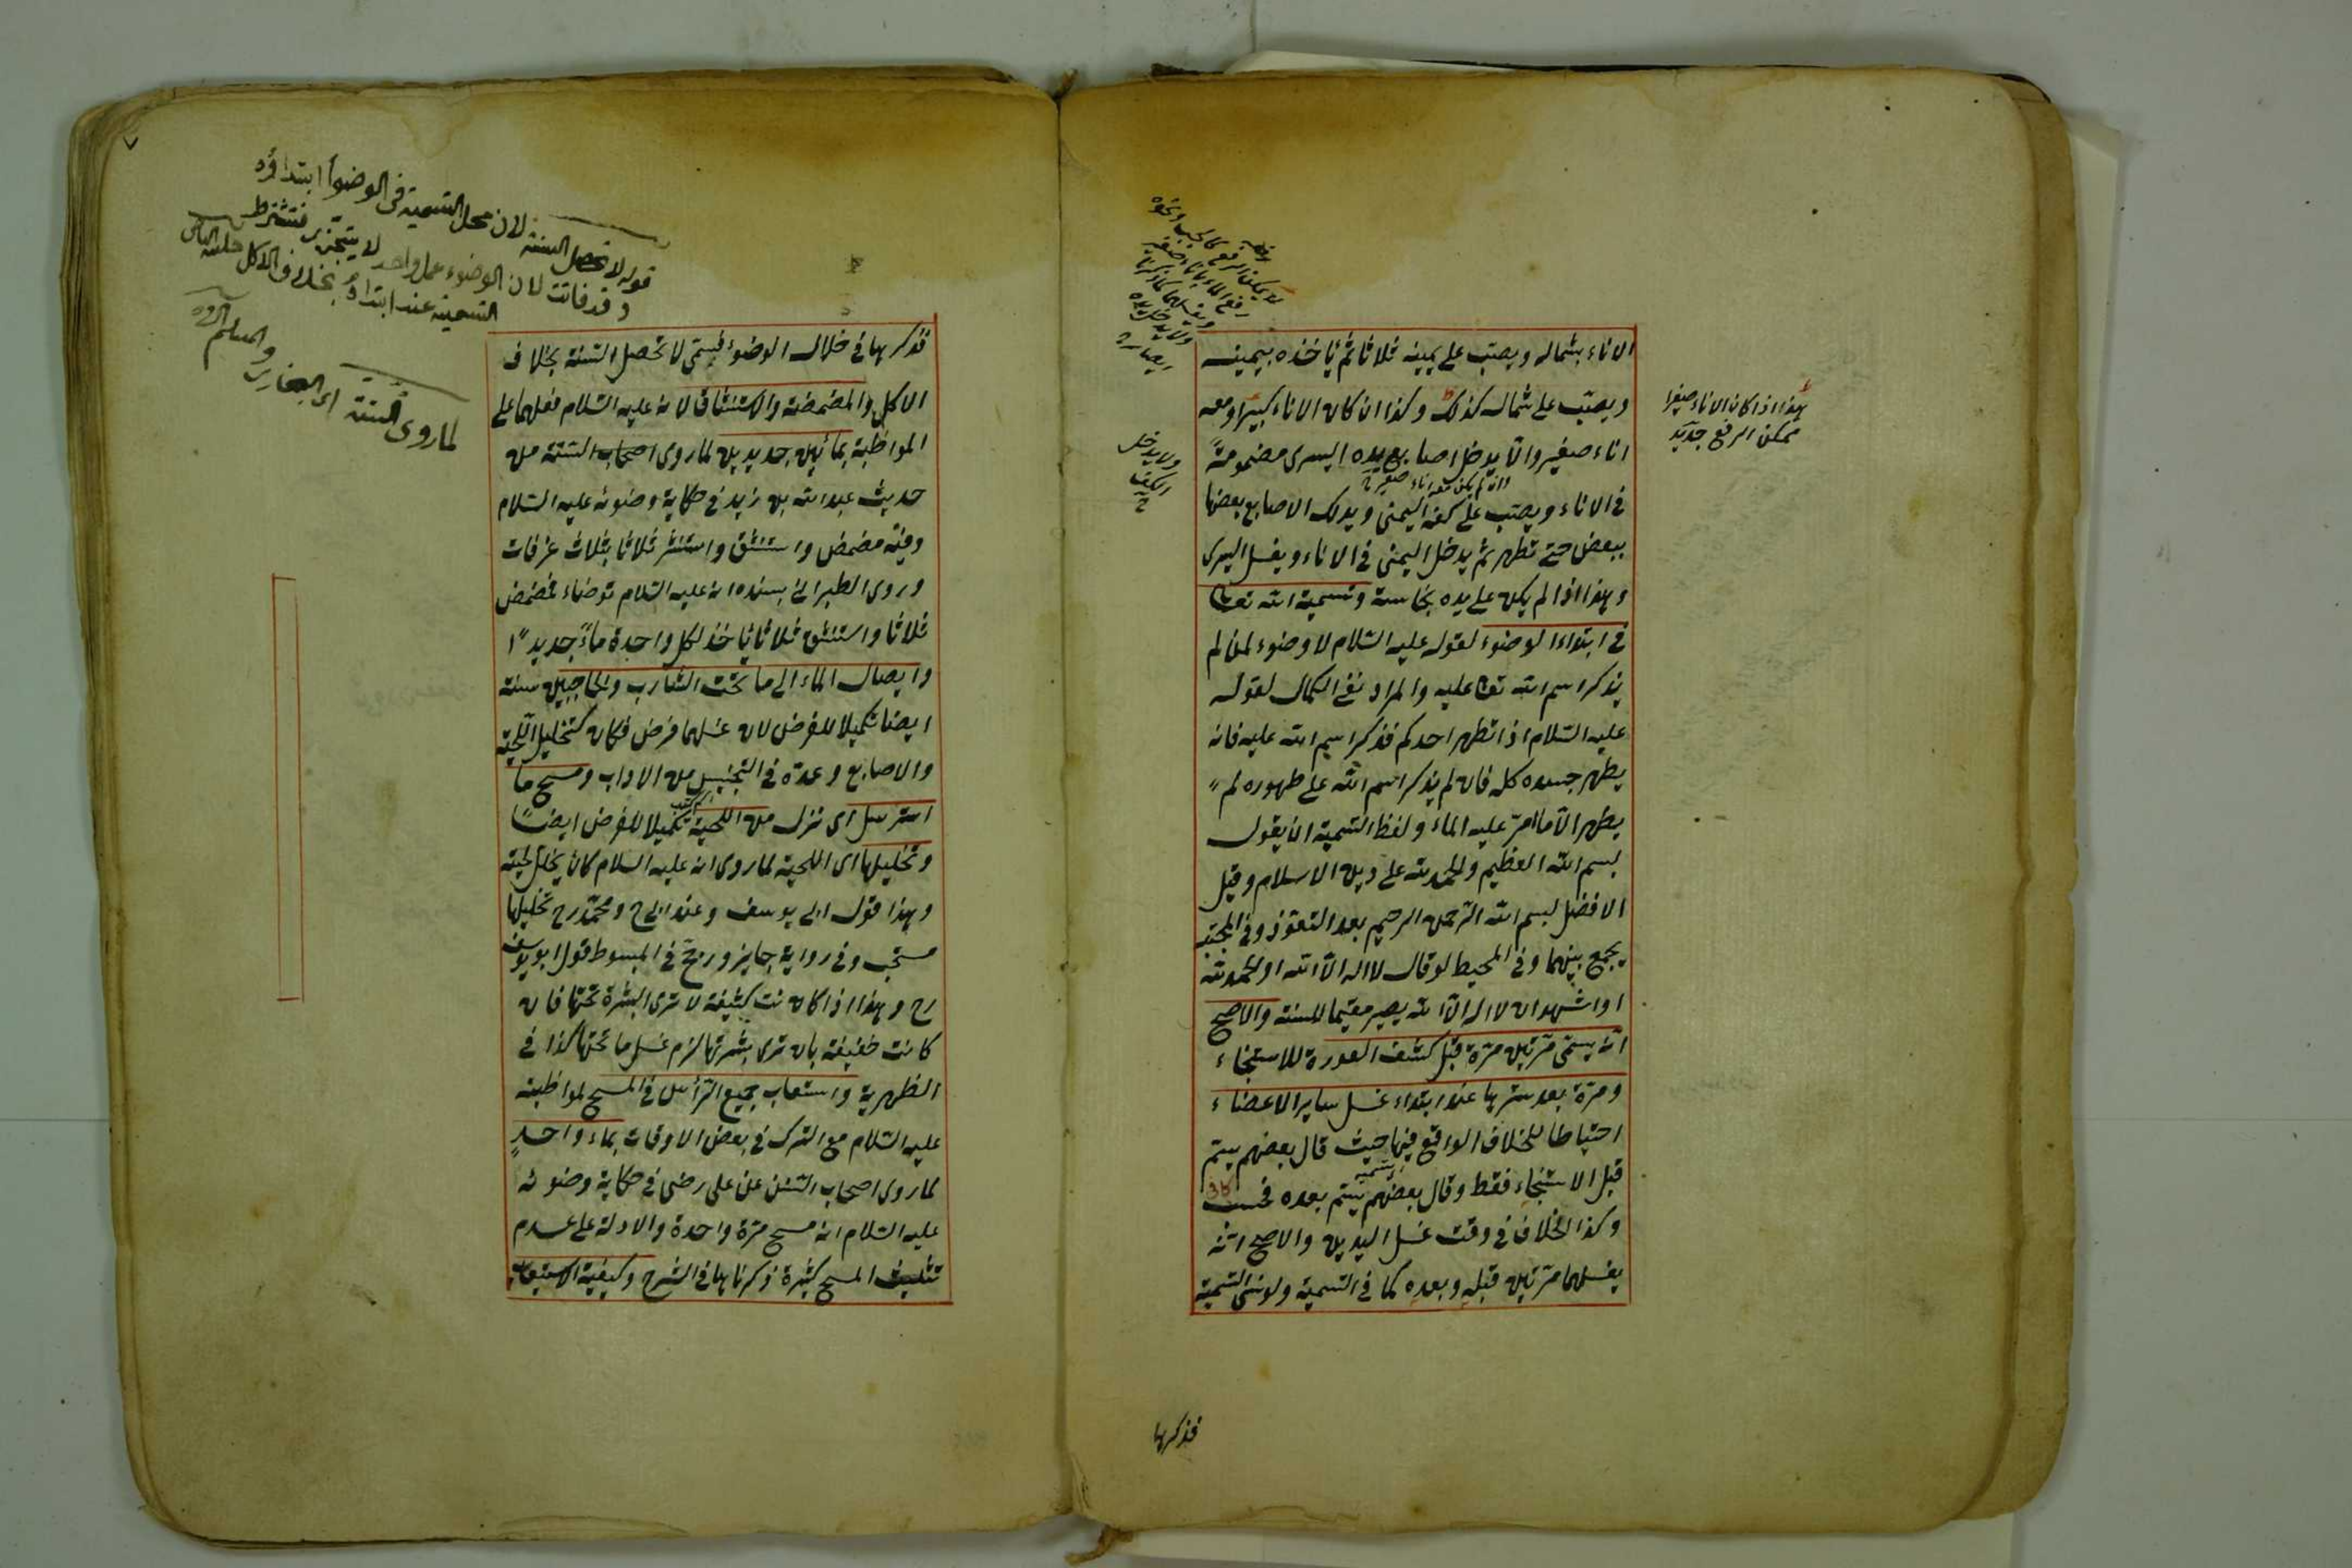 الاناء بشماله ويصب على يمينه ثلاثا ثم يأخذه بيمينه
ويصب على شماله كذلك وكذا ان كان الاناء كبيرا ومعه
اناء صغير والا يدخل اصابع يده اليسرى مضمومة
وان لم يكن معه اناء صغير
في الاناء ويصب على كفه اليمنى ويدلك الاصابع بعضها
ببعض حتى تطهر ثم يدخل اليمنى في الاناء ويغسل اليسرى
وهذا اذا لم يكن على يده نجاسة وتسمية الله تعا
في ابتداء الوضوء لقوله عليه السلام لا وضوء لمن لم
يذكر اسم الله تعا عليه والمراد نفي الكمال لقوله
عليه السلام اذا تطهر احدكم فذكر اسم الله عليه فانه
يطهر جسده كله فان لم يذكر اسم الله على طهوره لم
يطهر الا ما امر عليه الماء ولفظ التسمية ان يقول
بسم الله العظيم والحمد لله على دين الاسلام وقيل
الافضل بسم الله الرحمن الرحيم بعد التعوذ وفي المجتبى
يجمع بينهما وفي المحيط لو قال لا اله الا الله او الحمد لله
او اشهد ان لا اله الا الله يصير مقيما للسنة والاصح
انه يسمى مرتين مرة قبل كشف العورة للاستنجاء
ومرة بعد سترها عند ابتداء غسل ساير الاعضاء
احتياطا للخلاف الواقع فيها حيث قال بعضهم يسم
قبل الاستنجاء فقط وقال بعضهم يسم بعده فحسب
وكذا الخلاف في وقت غسل اليدين والاصح انه
يغسلهما مرتين قبله وبعده كما في التسمية ولو نسى التسمية
فذكرها
هذا اذا كان الاناء صغيرا
ممكن الرفع
ولا يدخل
الكف
فذكرها في خلال الوضوء فسمى لا تحصل السنة بخلاف
الاكل والمضمضة والاستنشاق لانه عليه السلام فعلهما على
المواظبة بمائين جديدين لما روى اصحاب الستة من
حديث عبد الله بن زيد في حكاية وضوئه عليه السلام
وفيه مضمض واستنشق واستنثر ثلاثا بثلاث غرفات
وروى الطبراني بسنده انه عليه السلام توضاء فمضمض
ثلاثا واستنشق ثلاثا يأخذ لكل واحدة ماء جديدا
وايصال الماء الى ما تحت الشارب والحاجبين سنة
ايضا تكميلا للفرض لان غسلهما فرض فكان كتخليل اللحية
والاصابع وعده في التجنيس من الاداب ومسح ما
استرسل اى نزل من اللحية تكميلا للفرض ايضا
وتخليلها اى اللحية لما روى انه عليه السلام كان يخلل لحيته
وهذا قول ابى يوسف وعند ابى ح ومحمد رح تخليلها
مستحب وفي رواية جايز ورجح في المبسوط قول ابو يوسف
رح وهذا اذا كانت كثيفة لا ترى البشرة تحتها فان
كانت خفيفة بان ترى بشرتها لزم غسل ما تحتها كذا في
الظهرية واستعاب جميع الرأس في المسح لمواظبته
عليه السلام مع الترك في بعض الاوقات بماء واحد
لما روى اصحاب السنن عن على رضى في حكاية وضوئه
عليه السلام انه مسح مرة واحدة والادلة على عدم
تثليث المسح كثيرة ذكرناها في الشرح وكيفية الاستيعاب
قوله لا تحصل السنة لان محل التسمية في الوضوء ابتداؤه
وقد فاتت لان الوضوء عمل واحد لا يتجزى فتشترط
التسمية عند ابتداؤه بخلاف الاكل
لما روى الستة اى البخارى والمسلم
٧